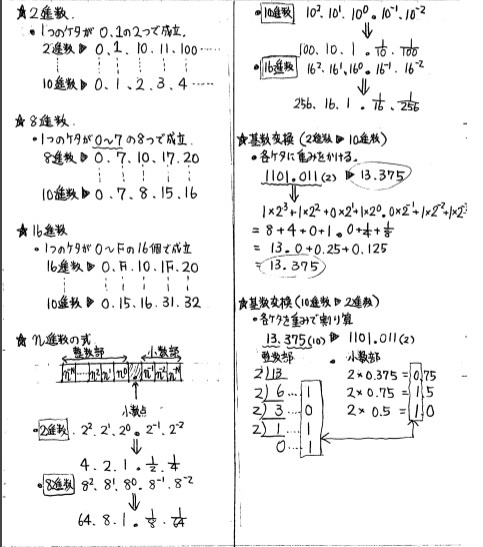 ★2進数.
・1つのケタが0,1の2つで成立.
2進数▷0、1、10、11、100……
10進数▷0、1、2、3、4……
★8進数.
・1つのケタが0〜7の8つで成立
8進数▷0、7、10、17、20
10進数▷0、7、8、15、16
★16進数
・1つのケタが0〜Fの16個で成立
16進数▷0、F、10、1F、20
10進数▷0、15、16、31、32
★n進数の式
整数部 小数部
nᴺ … n² n¹ n⁰ . n⁻¹ n⁻² n⁻ᴺ
小数点
・2進数 2²、2¹、2⁰ . 2⁻¹、2⁻²
⇓
4、2、1 . 1/2、1/4
・8進数 8²、8¹、8⁰ . 8⁻¹、8⁻²
⇓
64、8、1 . 1/8、1/64
・10進数 10²、10¹、10⁰ . 10⁻¹、10⁻²
⇓
100、10、1 . 1/10、1/100
・16進数 16²、16¹、16⁰ . 16⁻¹、16⁻²
⇓
256、16、1 . 1/16、1/256
★基数変換(2進数▷10進数)
・各ケタに重みをかける.
1101.011(2) ▷ 13.375
1×2³+1×2²+0×2¹+1×2⁰.0×2⁻¹+1×2⁻²+1×2⁻³
=8+4+0+1.0+1/4+1/8
=13.0+0.25+0.125
=13.375
★基数変換(10進数▷2進数)
・各ケタを重みで割り算
13.375(10) ▷ 1101.011(2)
整数部 ・ 小数部
2)13 2×0.375=0.75
2)6…1 2×0.75=1.5
2)3 0 2×0.5=1.0
2)1 1
0…1